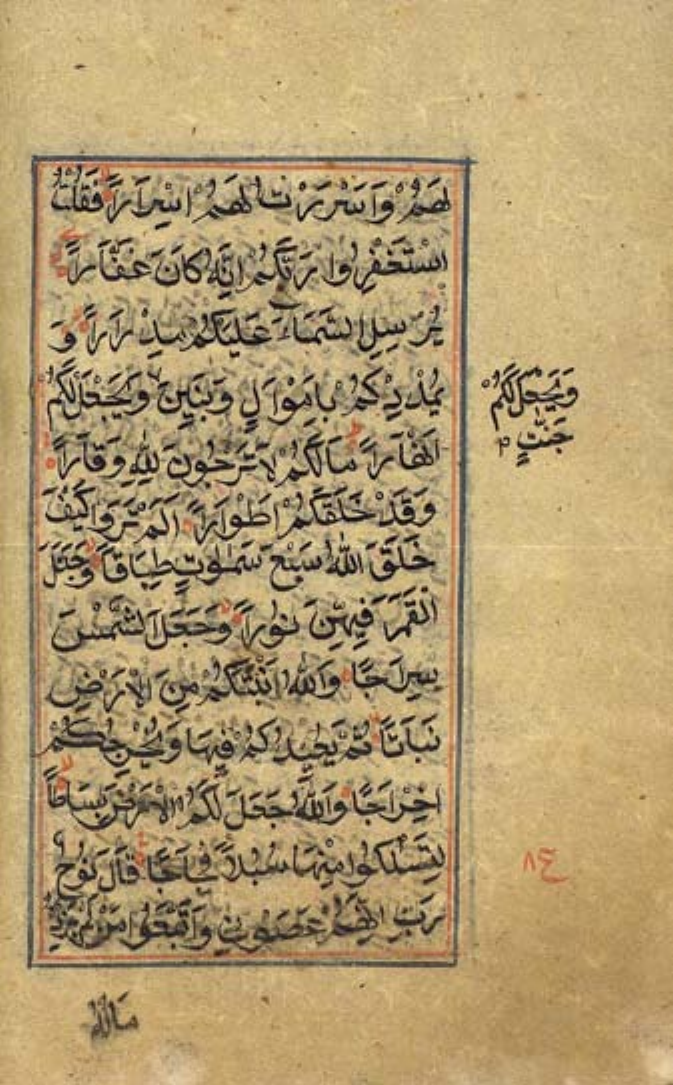 لَهُمْ وَاَسْرَرْتُ لَهُمْ اِسْرَاراً فَقُلْتُ
اسْتَغْفِرُوا رَبَّكُمْ اِنَّهُ كَانَ غَفَّاراً
يُرْسِلِ السَّمَاءَ عَلَيْكُمْ مِدْرَاراً وَ
يُمْدِدْكُمْ بِاَمْوَالٍ وَبَنِينَ وَيَجْعَلْ لَكُمْ
اَنْهَاراً مَالَكُمْ لَا تَرْجُونَ لِلّٰهِ وَقَاراً
وَقَدْ خَلَقَكُمْ اَطْوَاراً اَلَمْ تَرَوْا كَيْفَ
خَلَقَ اللّٰهُ سَبْعَ سَمٰوٰتٍ طِبَاقاً وَجَعَلَ
الْقَمَرَ فِيهِنَّ نُوراً وَجَعَلَ الشَّمْسَ
سِرَاجًا وَاللّٰهُ اَنْبَتَكُمْ مِنَ الْاَرْضِ
نَبَاتًا ثُمَّ يُعِيدُكُمْ فِيهَا وَيُخْرِجُكُمْ
اِخْرَاجًا وَاللّٰهُ جَعَلَ لَكُمُ الْاَرْضَ بِسَاطاً
لِتَسْلُكُوا مِنْهَا سُبُلًا فِجَاجًا قَالَ نُوحٌ
رَبِّ اِنَّهُمْ عَصَوْنِي وَاتَّبَعُوا مَنْ لَمْ يَزِدْهُ
وَيَجْعَلْ لَكُمْ
جَنّٰتٍ
مَالُهُ